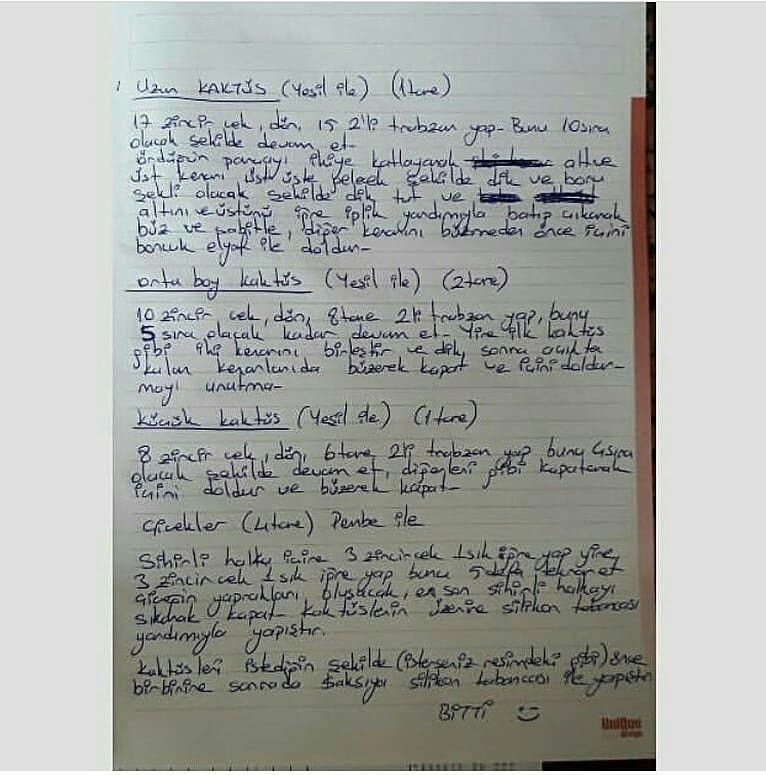 Uzun KAKTÜS (Yeşil ile) (1 tane)
17 zincir çek, dön, 15 2'li trabzan yap- Bunu 10 sıra
olacak şekilde devam et-
ördüğün parçayı ikiye katlayarak alt ve
üst kenarı üst üste gelecek şekilde dik ve boru
şekli olacak şekilde dik tut ve
altını ve üstünü iğne iplik yardımıyla batıp çıkarak
büz ve sabitle, diğer kenarını büzmeden önce içini
boncuk elyaf ile doldur-
orta boy kaktüs (Yeşil ile) (2 tane)
10 zincir çek, dön, 8 tane 2li trabzan yap, bunu
5 sıra olacak kadar devam et- Yine ilk kaktüs
gibi iki kenarını birleştir ve dik, sonra açıkta
kalan kenarlarıda büzerek kapat ve içini doldur-
mayı unutma-
Küçük kaktüs (Yeşil ile) (1 tane)
8 zincir çek, dön, 6 tane 2li trabzan yap bunu 4 sıra
olacak şekilde devam et, diğerleri gibi kapatarak
içini doldur ve büzerek kapat-
Çiçekler (4 tane) Pembe ile
Sihirli halka içine 3 zincir çek 1 sık iğne yap yine
3 zincir çek 1 sık iğne yap bunu 5 defa tekrar et
Çiçeğin yaprakları oluşacak, en son sihirli halkayı
sıkarak kapat- Kaktüslerin üzerine silikon tabancası
yardımıyla yapıştır.
Kaktüsleri istediğin şekilde (isterseniz resimdeki gibi) önce
birbirine sonrada saksıya silikon tabancası ile yapıştır
BİTTİ
UniQue